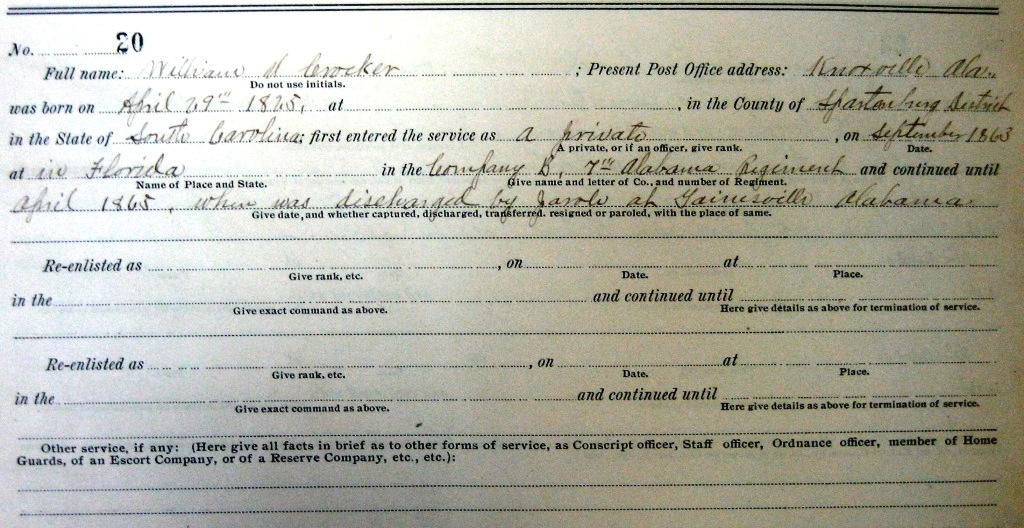 No. 20
Full name: William H Crocker ; Present Post Office address: Knoxville Ala.
Do not use initials.
was born on April 29th 1825, at , in the County of Spartanburg District
in the State of South Carolina; first entered the service as a private , on September 1863
A private, or if an officer, give rank. Date.
at in Florida in the Company B, 7th Alabama Regiment and continued until
Name of Place and State. Give name and letter of Co., and number of Regiment.
April 1865, when was discharged by Parole at Gainesville Alabama.
Give date, and whether captured, discharged, transferred. resigned or paroled, with the place of same.
Re-enlisted as , on at
Give rank, etc. Date. Place.
in the and continued until
Give exact command as above. Here give details as above for termination of service.
Re-enlisted as , on at
Give rank, etc. Date. Place.
in the and continued until
Give exact command as above. Here give details as above for termination of service.
Other service, if any: (Here give all facts in brief as to other forms of service, as Conscript officer, Staff officer, Ordnance officer, member of Home
Guards, of an Escort Company, or of a Reserve Company, etc., etc.):